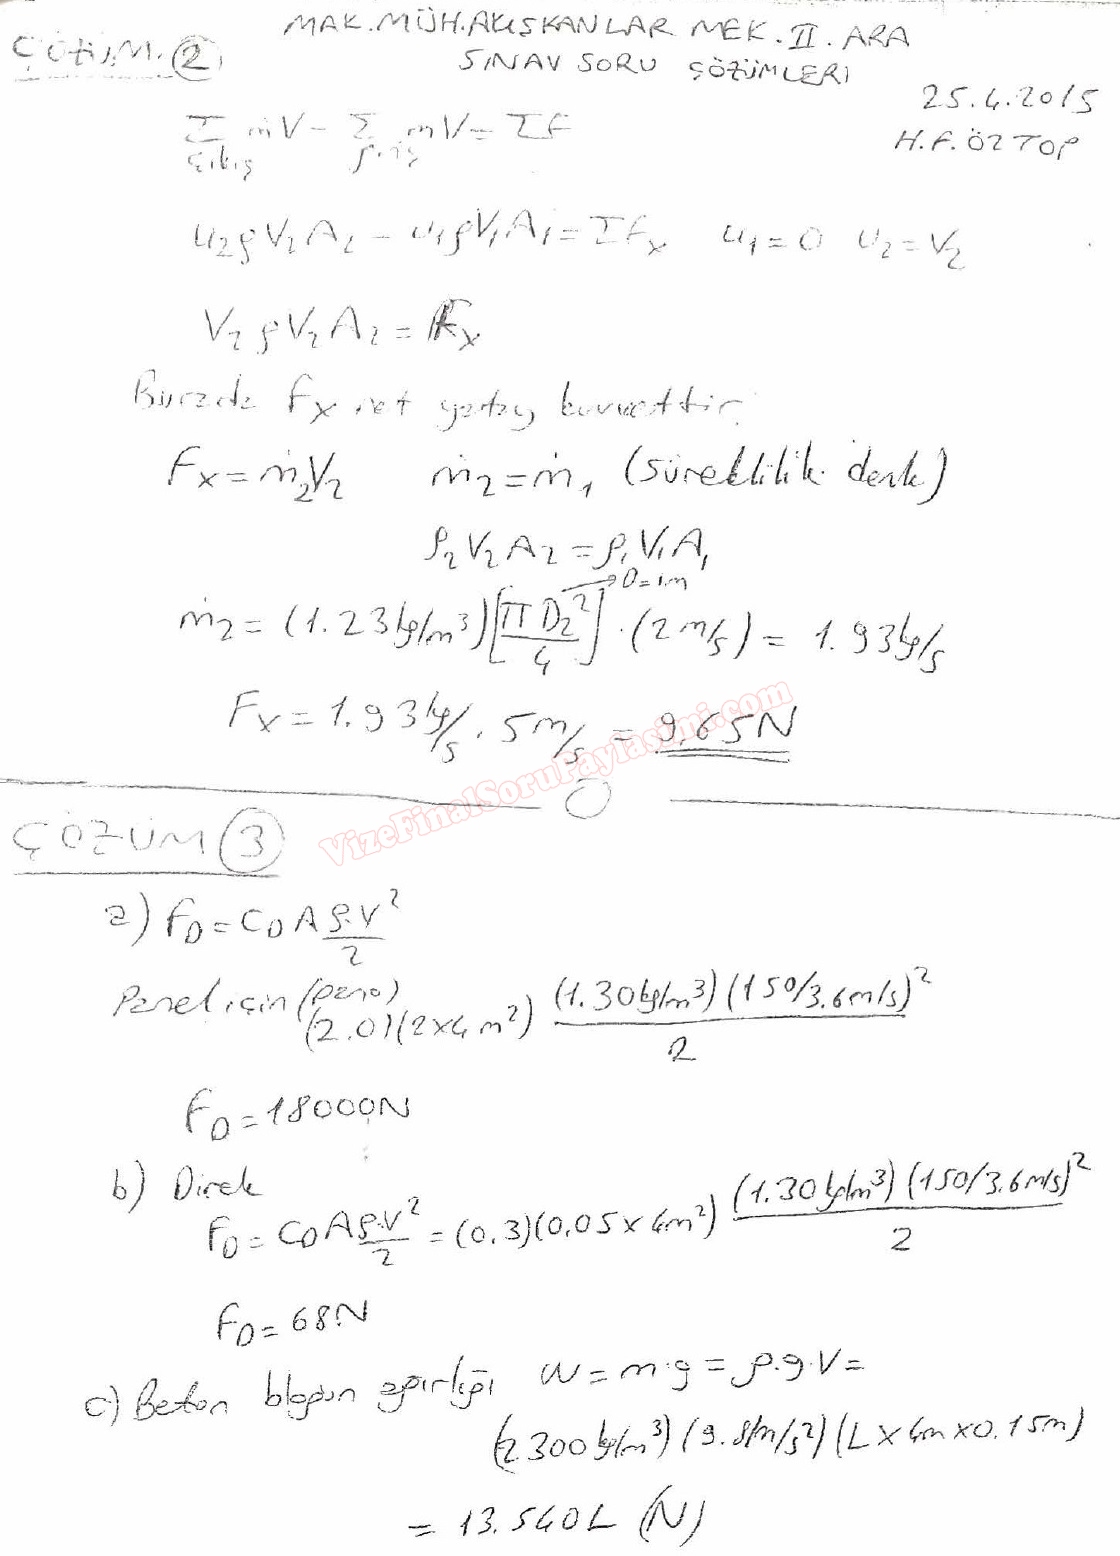 MAK. MÜH. AKIŞKANLAR MEK. II. ARA
SINAV SORU ÇÖZÜMLERİ
25.4.2015
H.F. ÖZTOP
ÇÖZÜM. 2
Σ ṁV - Σ ṁV = ΣF
çıkış giriş
u₂ρV₂A₂ - u₁ρV₁A₁ = ΣFx u₁ = 0 u₂ = V₂
V₂ρV₂A₂ = Fx
Burada Fx net yatay kuvvettir.
Fx = ṁ₂V₂ ṁ₂ = ṁ₁ (süreklilik denk)
ρ₂V₂A₂ = ρ₁V₁A₁
ṁ₂ = (1.23 kg/m³) [πD₂²/4] · (2 m/s) = 1.93 kg/s
→ D = 1m
Fx = 1.93 kg/s . 5 m/s = 9.65 N
VizeFinalSoruPaylasimi.com
ÇÖZÜM 3
a) F_D = C_D A ρ.V²/2
Panel için (pano)
(2.0)(2x4 m²) (1.30 kg/m³)(150/3.6 m/s)²/2
F_D = 18000N
b) Direk
F_D = C_D A ρ.V²/2 = (0.3)(0.05 x 4m²) (1.30 kg/m³)(150/3.6 m/s)²/2
F_D = 68N
c) Beton bloğun ağırlığı W = m.g = ρ.g.V =
(2.300 kg/m³)(9.81m/s²)(L x 4m x 0.15m)
= 13.540L (N)